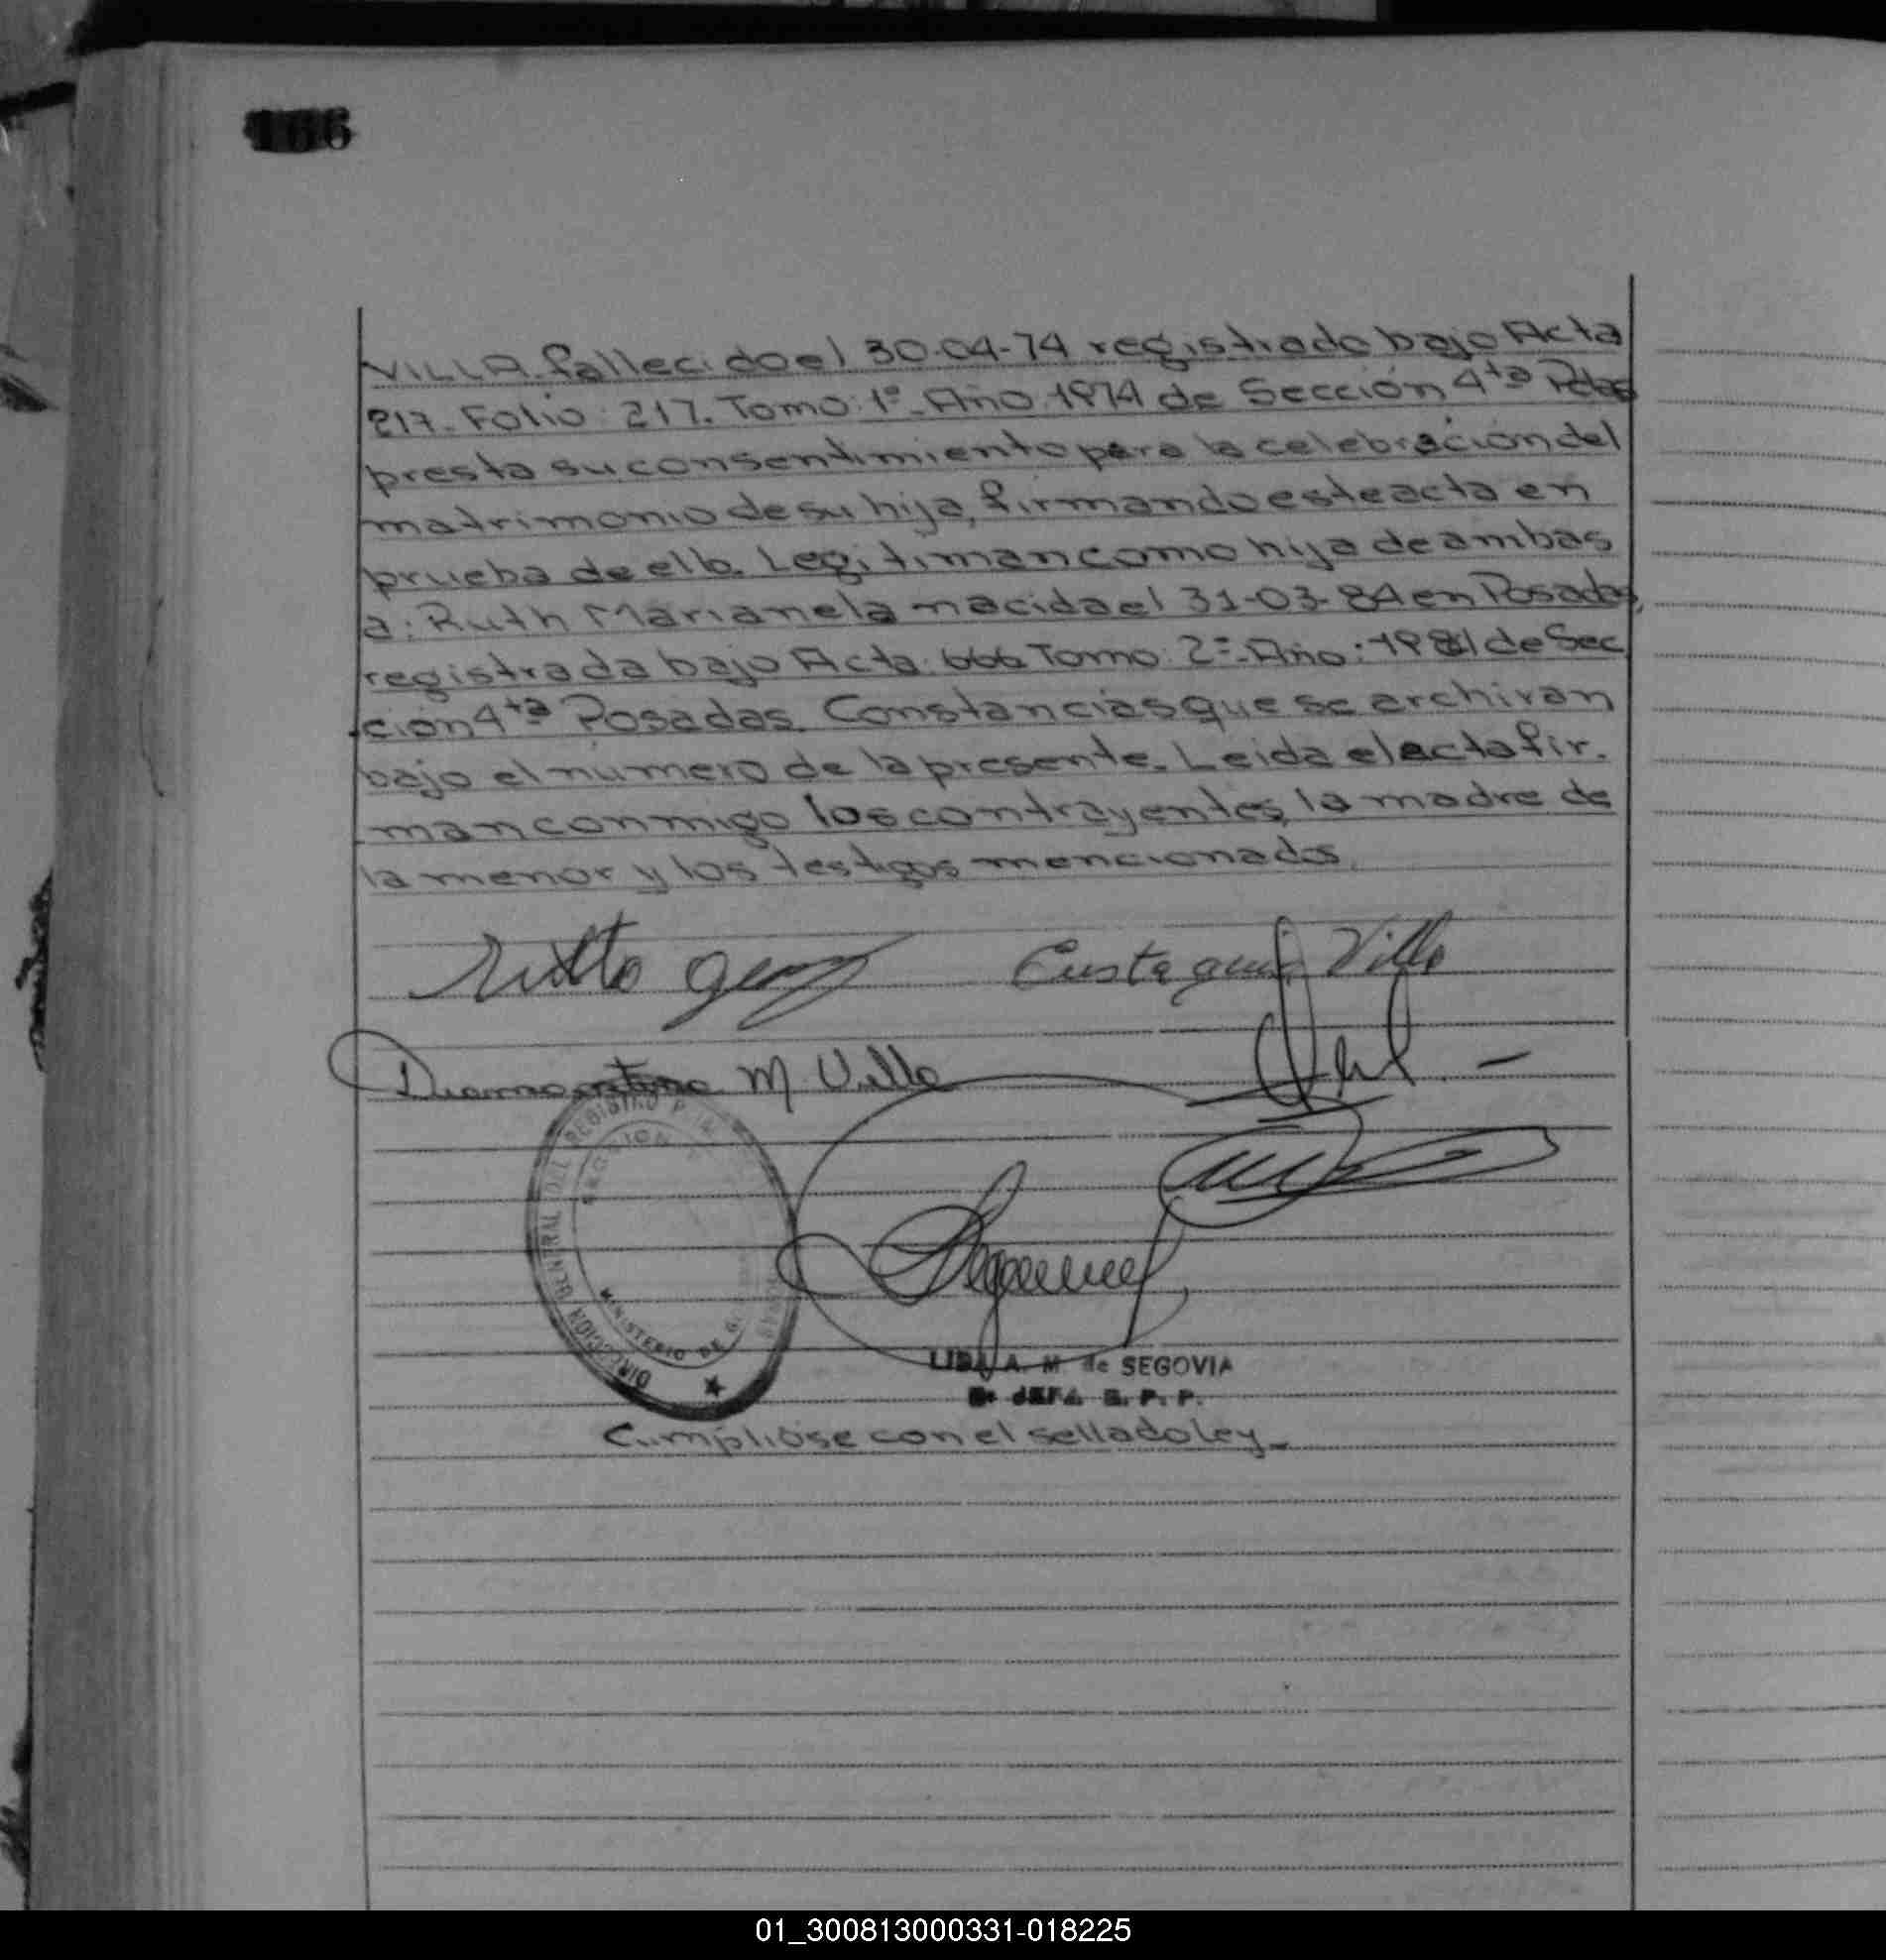 166
VILLA fallecido el 30-04-74 registrado bajo Acta
217. Folio: 217. Tomo: 1º. Año 1974 de Sección 4ta Pdas
presta su consentimiento para la celebración del
matrimonio de su hija, firmando este acta en
prueba de ello. Legitiman como hija de ambas
a: Ruth Marianela nacida el 31-03-84 en Posadas,
registrada bajo Acta: 666 Tomo: 2º. Año: 1981 de Sec
ción 4ta Posadas. Constancias que se archivan
bajo el número de la presente. Leida el acta fir.
man conmigo los contrayentes, la madre de
la menor y los testigos mencionados.
Villa
M. Villa
DIRECCION GENERAL DEL REGISTRO
SECCION
MINISTERIO DE G.
A. M de SEGOVIA
JEFA R. P. P.
Cumplióse con el sellado ley.
01_300813000331-018225